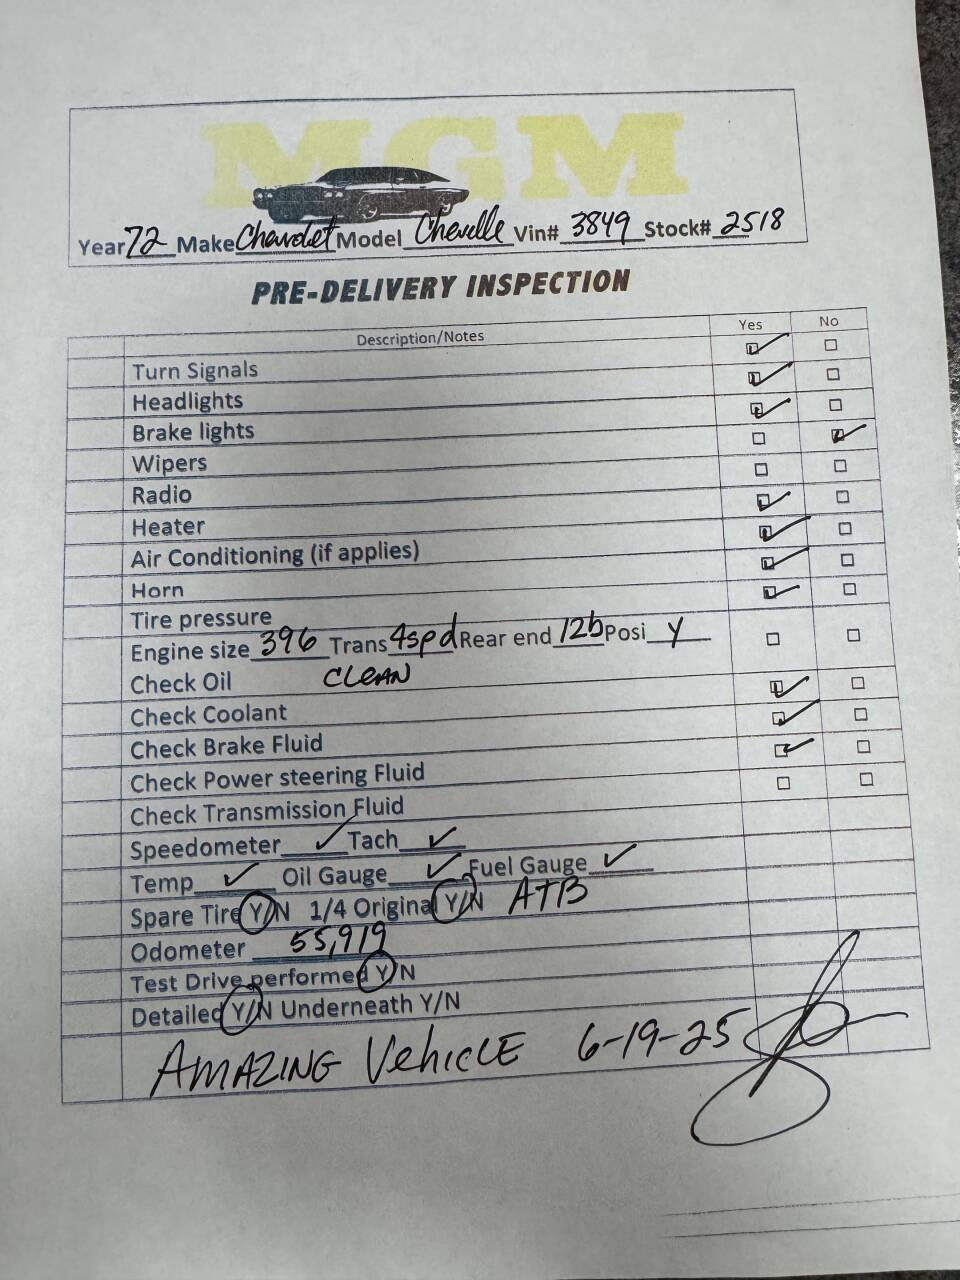 MGM
Year 72 Make Chevrolet Model Chevelle Vin# 3849 Stock# 2518
PRE-DELIVERY INSPECTION
Description/Notes Yes No
Turn Signals
Headlights
Brake lights
Wipers
Radio
Heater
Air Conditioning (if applies)
Horn
Tire pressure
Engine size 396 Trans 4spd Rear end 12b Posi Y
Check Oil CLEAN
Check Coolant
Check Brake Fluid
Check Power steering Fluid
Check Transmission Fluid
Speedometer ✓ Tach ✓
Temp ✓ Oil Gauge ✓ Fuel Gauge ✓
Spare Tire Y/N 1/4 Original Y/N ATB
Odometer 55,919
Test Drive performed Y/N
Detailed Y/N Underneath Y/N
AMAZING VEHICLE 6-19-25